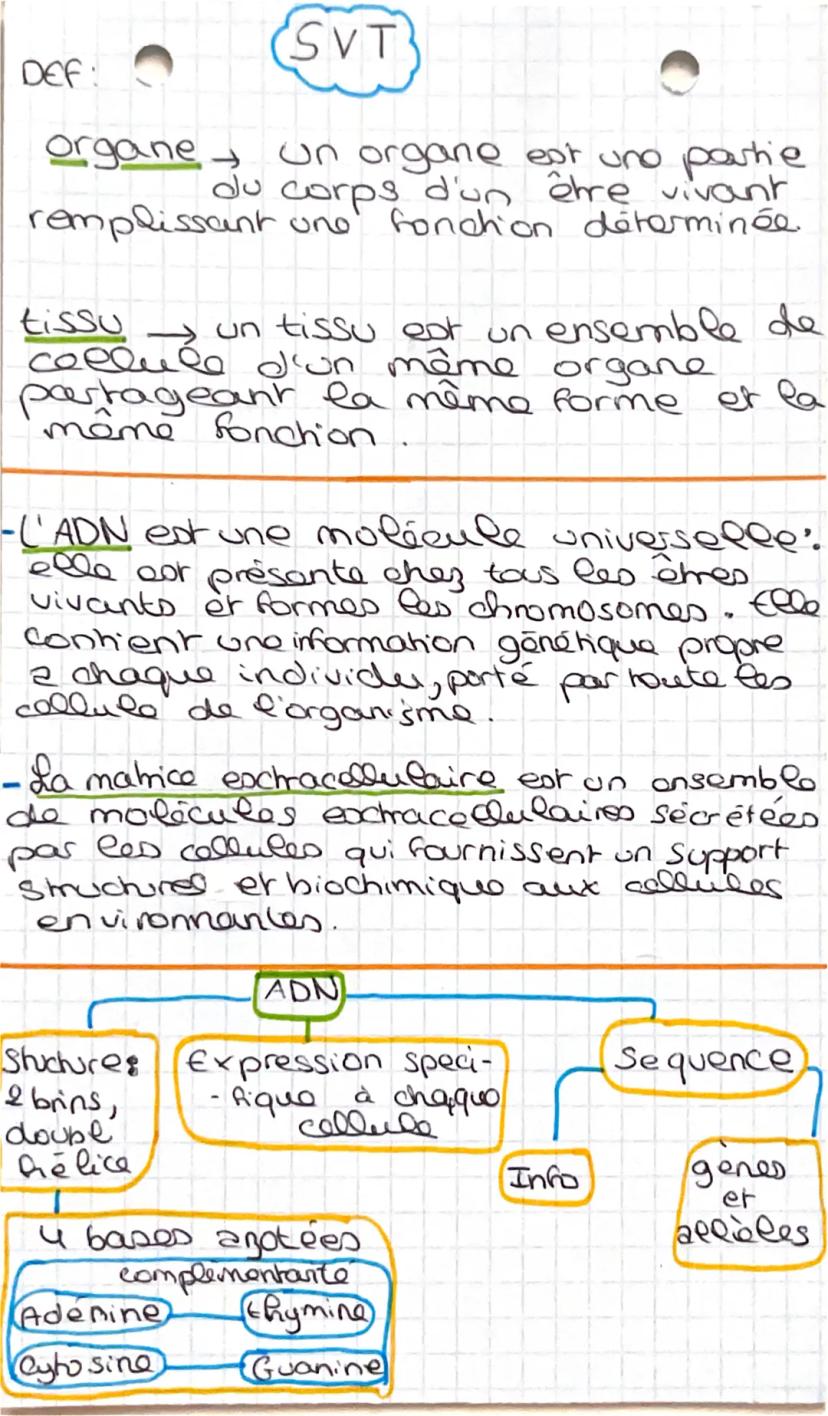 SVT
DEF:
organe → un organe est une partie
du corps d'un être vivant
remplissant une fonction déterminée.
tissu → un tissu est un ensemble de
cellule d'un même organe
partageant la même forme et la
même fonction.
- L'ADN est une molécule universelle:
elle est présente chez tous les êtres
vivants et formes les chromosomes. Elle
contient une information génétique propre
a chaque individu, porté par toute les
cellule de l'organisme.
- La matrice extracellulaire est un ensemble
de molécules extracellulaires sécrétées
par les cellules qui fournissent un support
structures et biochimique aux cellules
environnantes.
ADN
Structure:
2 brins,
double
hélice
Expression speci-
-fique à chaque
cellule
Sequence
Info
gènes
et
allèles
4 bases azotées
complémentarité
Adénine thymine
Cytosine Guanine